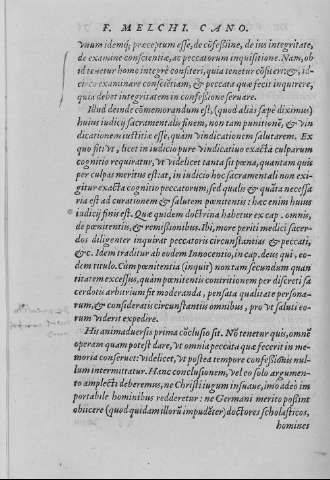 F. MELCHI. CANO.
vnum idemq́; præceptum esse, de cõfeßiõne, de ins integritate,
de examine conscientiæ, ac peccatorum inquisitione. Nam, ob
id tenetur homo integrè confiteri, quia tenetur cõfiteri: &, id-
circo examinare consciẽtiam, & peccata quæ fecit inquirere,
quia debet integritatem in confeßione seruare.
Illud deinde cõmemorandum est, (quod aliàs sæpè diximus)
huius iudicij sacramentalis finem, non tam punitionẽ, & vin
dicationem iustitiæ esse, quàm vindicationem salutarem. Ex
quo fit: vt, licet in iudicio purè vindicatiuo exacta culparum
cognitio requiratur, vt videlicet tanta sit pœna, quantam quis
per culpas meritus est: at, in iudicio hoc sacramentali non exi-
gitur exacta cognitio peccatorum, sed qualis & quãta necessa-
ria est ad curationem & salutem pœnitentis: hæc enim huius
iudicij finis est. Quæ quidem doctrina habetur ex cap. omnis,
de pœnitentijs, & remißionibus. Ibi, more periti medici sacer-
dos diligenter inquirat peccatoris circunstantias & peccati,
&c. Idem traditur ab eodem Innocentio, in cap. deus qui, eo-
dem titulo. Cùm pœnitentia (inquit) non tam secundum quan
titatem excessus, quàm pœnitentis contritionem per discreti sa
cerdotis arbitrium sit moderanda, pensata qualitate persona-
rum, & consideratis circunstantijs omnibus, pro vt saluti eo-
rum viderit expedire.
His animaduersis prima cõclusio sit. Nõ tenetur quis, omnẽ
operam quam potest dare, vt omnia peccata quæ fecerit in me-
moria conseruet: videlicet, vt postea tempore confeßionis nul-
lum intermittatur. Hanc conclusionem, vel eo solo argumen-
to amplecti deberemus, ne Christi iugum insuaue, imò adeo im
portabile hominibus redderetur: ne Germani merito poßint
obijcere (quod quidam illorũ impudẽter) doctores scholasticos,
homines